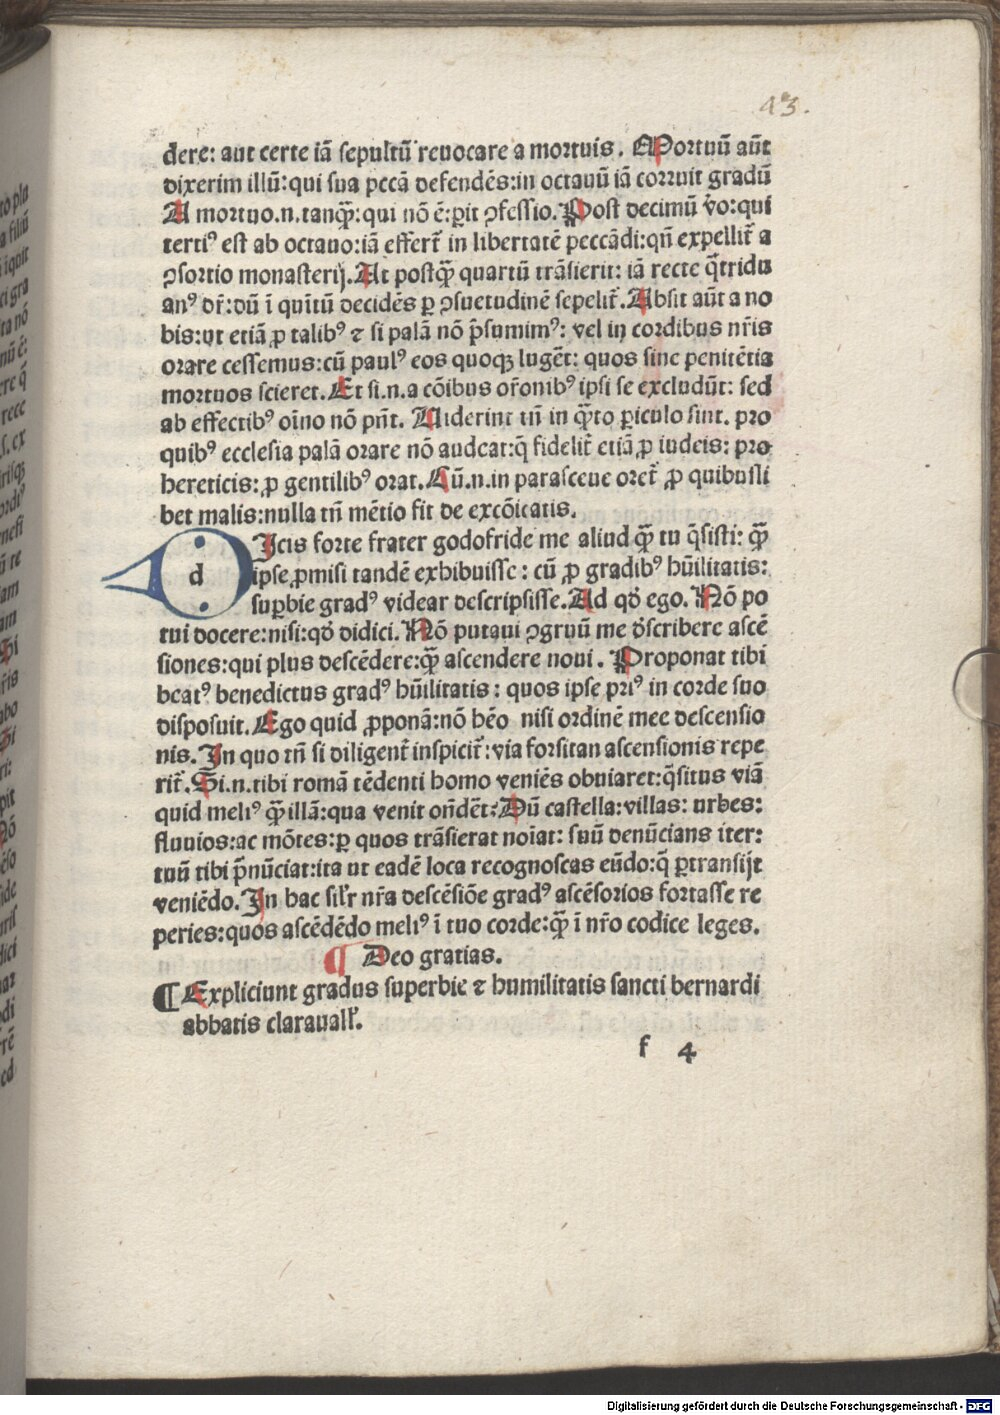 43.
dere: aut certe iā sepultū reuocare a mortuis. Mortuū aūt
dixerim illū: qui sua pccā defendēs: in octauū iā corruit gradū
A mortuo .n. tanqꝫ: qui nō ē: ꝑit ꝯfessio. Post decimū ṽo: qui
tertiꝰ est ab octauo: iā effert̃ in libertatē peccādi: qñ expellit̃ a
ꝯsortio monasterij. At postqꝫ quartū trāsierit: iā recte q̃tridu
anꝰ dr̃: dū ī quītū decidēs ꝑ ꝯsuetudinē sepelit̃. Absit aūt a no
bis: ut etiā ꝓ talibꝰ ⁊ si palā nō p̃sumimꝰ: vel in cordibus nr̃is
orare cessemus: cū paulꝰ eos quoqꝫ lugēt: quos sine penitētia
mortuos scieret. Et si .n. a cōibus or̃onibꝰ ipsi se excludūt: sed
ab effectibꝰ oīno nō pñt. Uiderint tñ in q̃to ꝑiculo sint. pro
quibꝰ ecclesia palā orare nō audeat: q̃ fidelit̃ etiā ꝓ iudeis: pro
hereticis: ꝓ gentilibꝰ orat. Cū .n. in parasceue oret̃ ꝓ quibusli
bet malis: nulla tñ mētio fit de excōicatis.
d Icis forte frater godofride me aliud qꝫ tu q̃sisti: qꝫ
ipse ꝓmisi tandē exhibuisse: cū ꝓ gradibꝰ hūilitatis:
suꝑbie gradꝰ videar descripsisse. Ad qď ego. Nō po
tui docere: nisi: qď didici. Nō putaui ꝯgruū me ďscribere ascē
siones: qui plus descēdere: qꝫ ascendere noui. Proponat tibi
beatꝰ benedictus gradꝰ hūilitatis: quos ipse priꝰ in corde suo
disposuit. Ego quid ꝓponā: nō hēo nisi ordinē mee descensio
nis. In quo tñ si diligent̃ inspicit̃: via forsitan ascensionis repe
rit̃. Si .n. tibi romā tēdenti homo veniēs obuiaret: q̃situs viā
quid meliꝰ qꝫ illā: qua venit oñdēt: Dū castella: villas: urbes:
fluuios: ac mōtes: ꝑ quos trāsierat noīat: suū denūcians iter:
tuū tibi p̃nūciat: ita ut eadē loca recognoscas eūdo: q̃ ꝑtransijt
veniēdo. In hac sil̃r nr̃a descēsiōe gradꝰ ascēsorios fortasse re
peries: quos ascēdēdo meliꝰ ī tuo corde: qꝫ ī nr̃o codice leges.
¶ Deo gratias.
¶ Expliciunt gradus superbie ⁊ humilitatis sancti bernardi
abbatis clarauall̃.
f 4
Digitalisierung gefördert durch die Deutsche Forschungsgemeinschaft - DFG